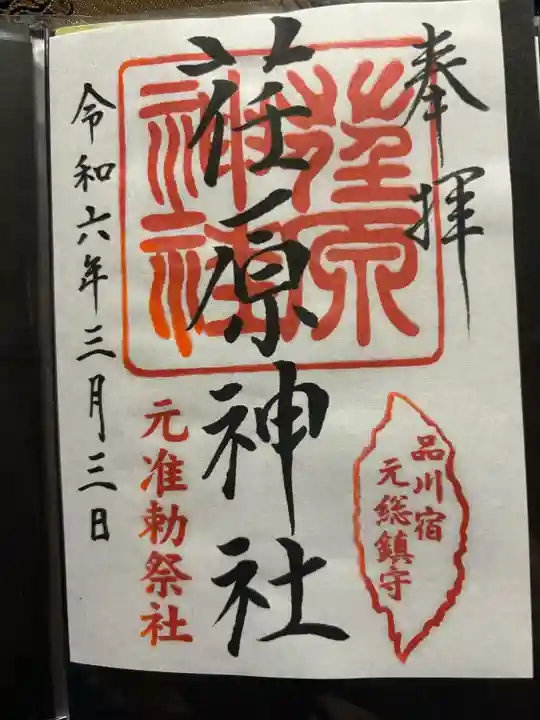 奉拝
荏原神社
荏原
神社
品川宿
元総鎮守
元准勅祭社
令和六年三月三日